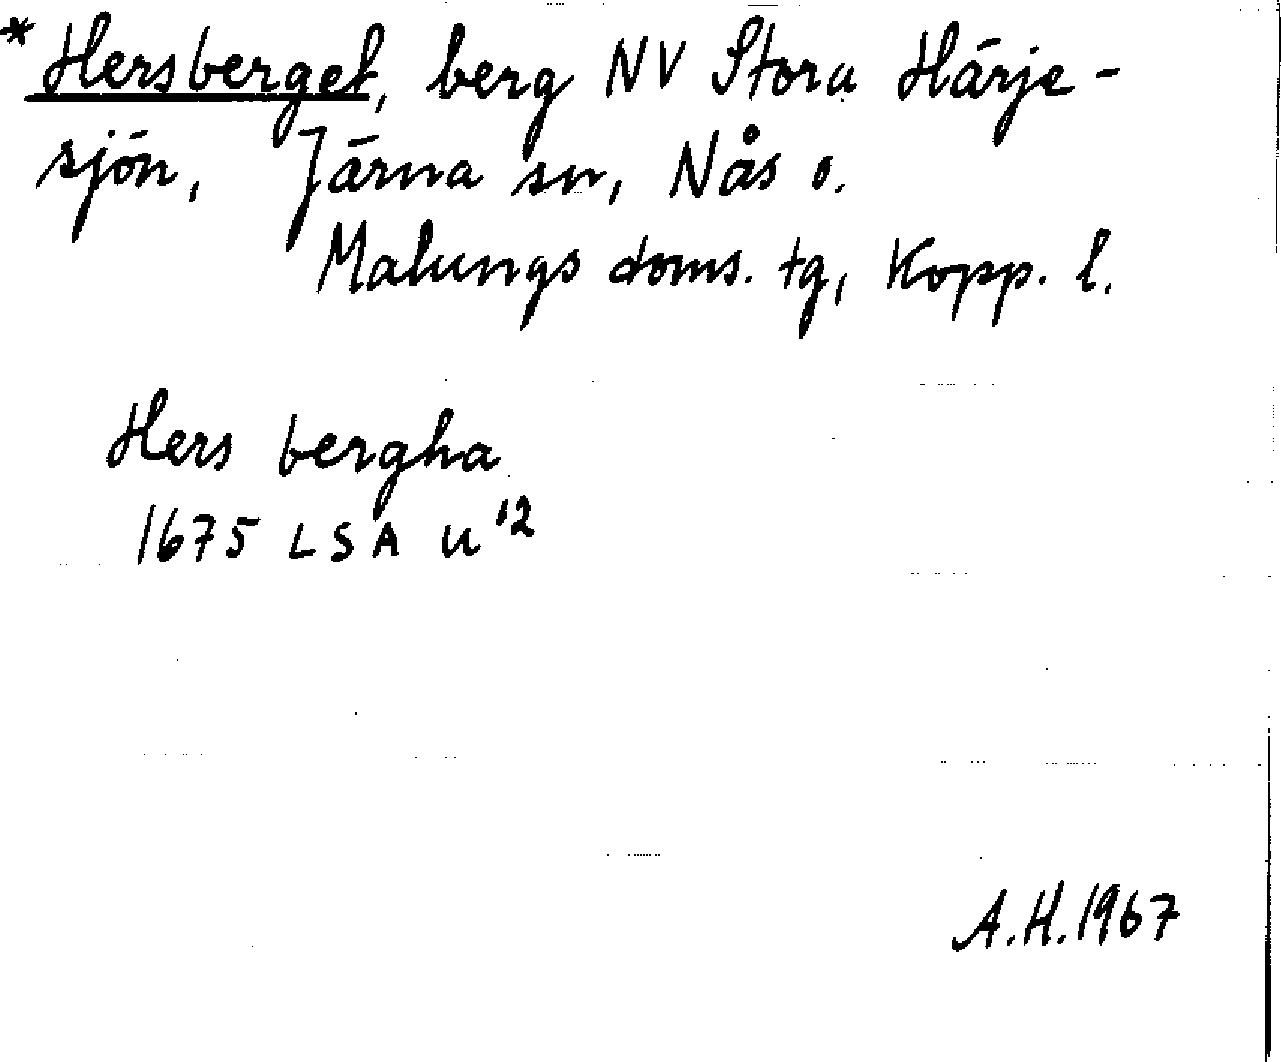 * Hersberget, berg NV Stora Härje-
sjön, Järna sn, Nås o.
Malungs doms. tg, Kopp. l.
Hers bergha
1675 LSA U '2
A.H. 1967